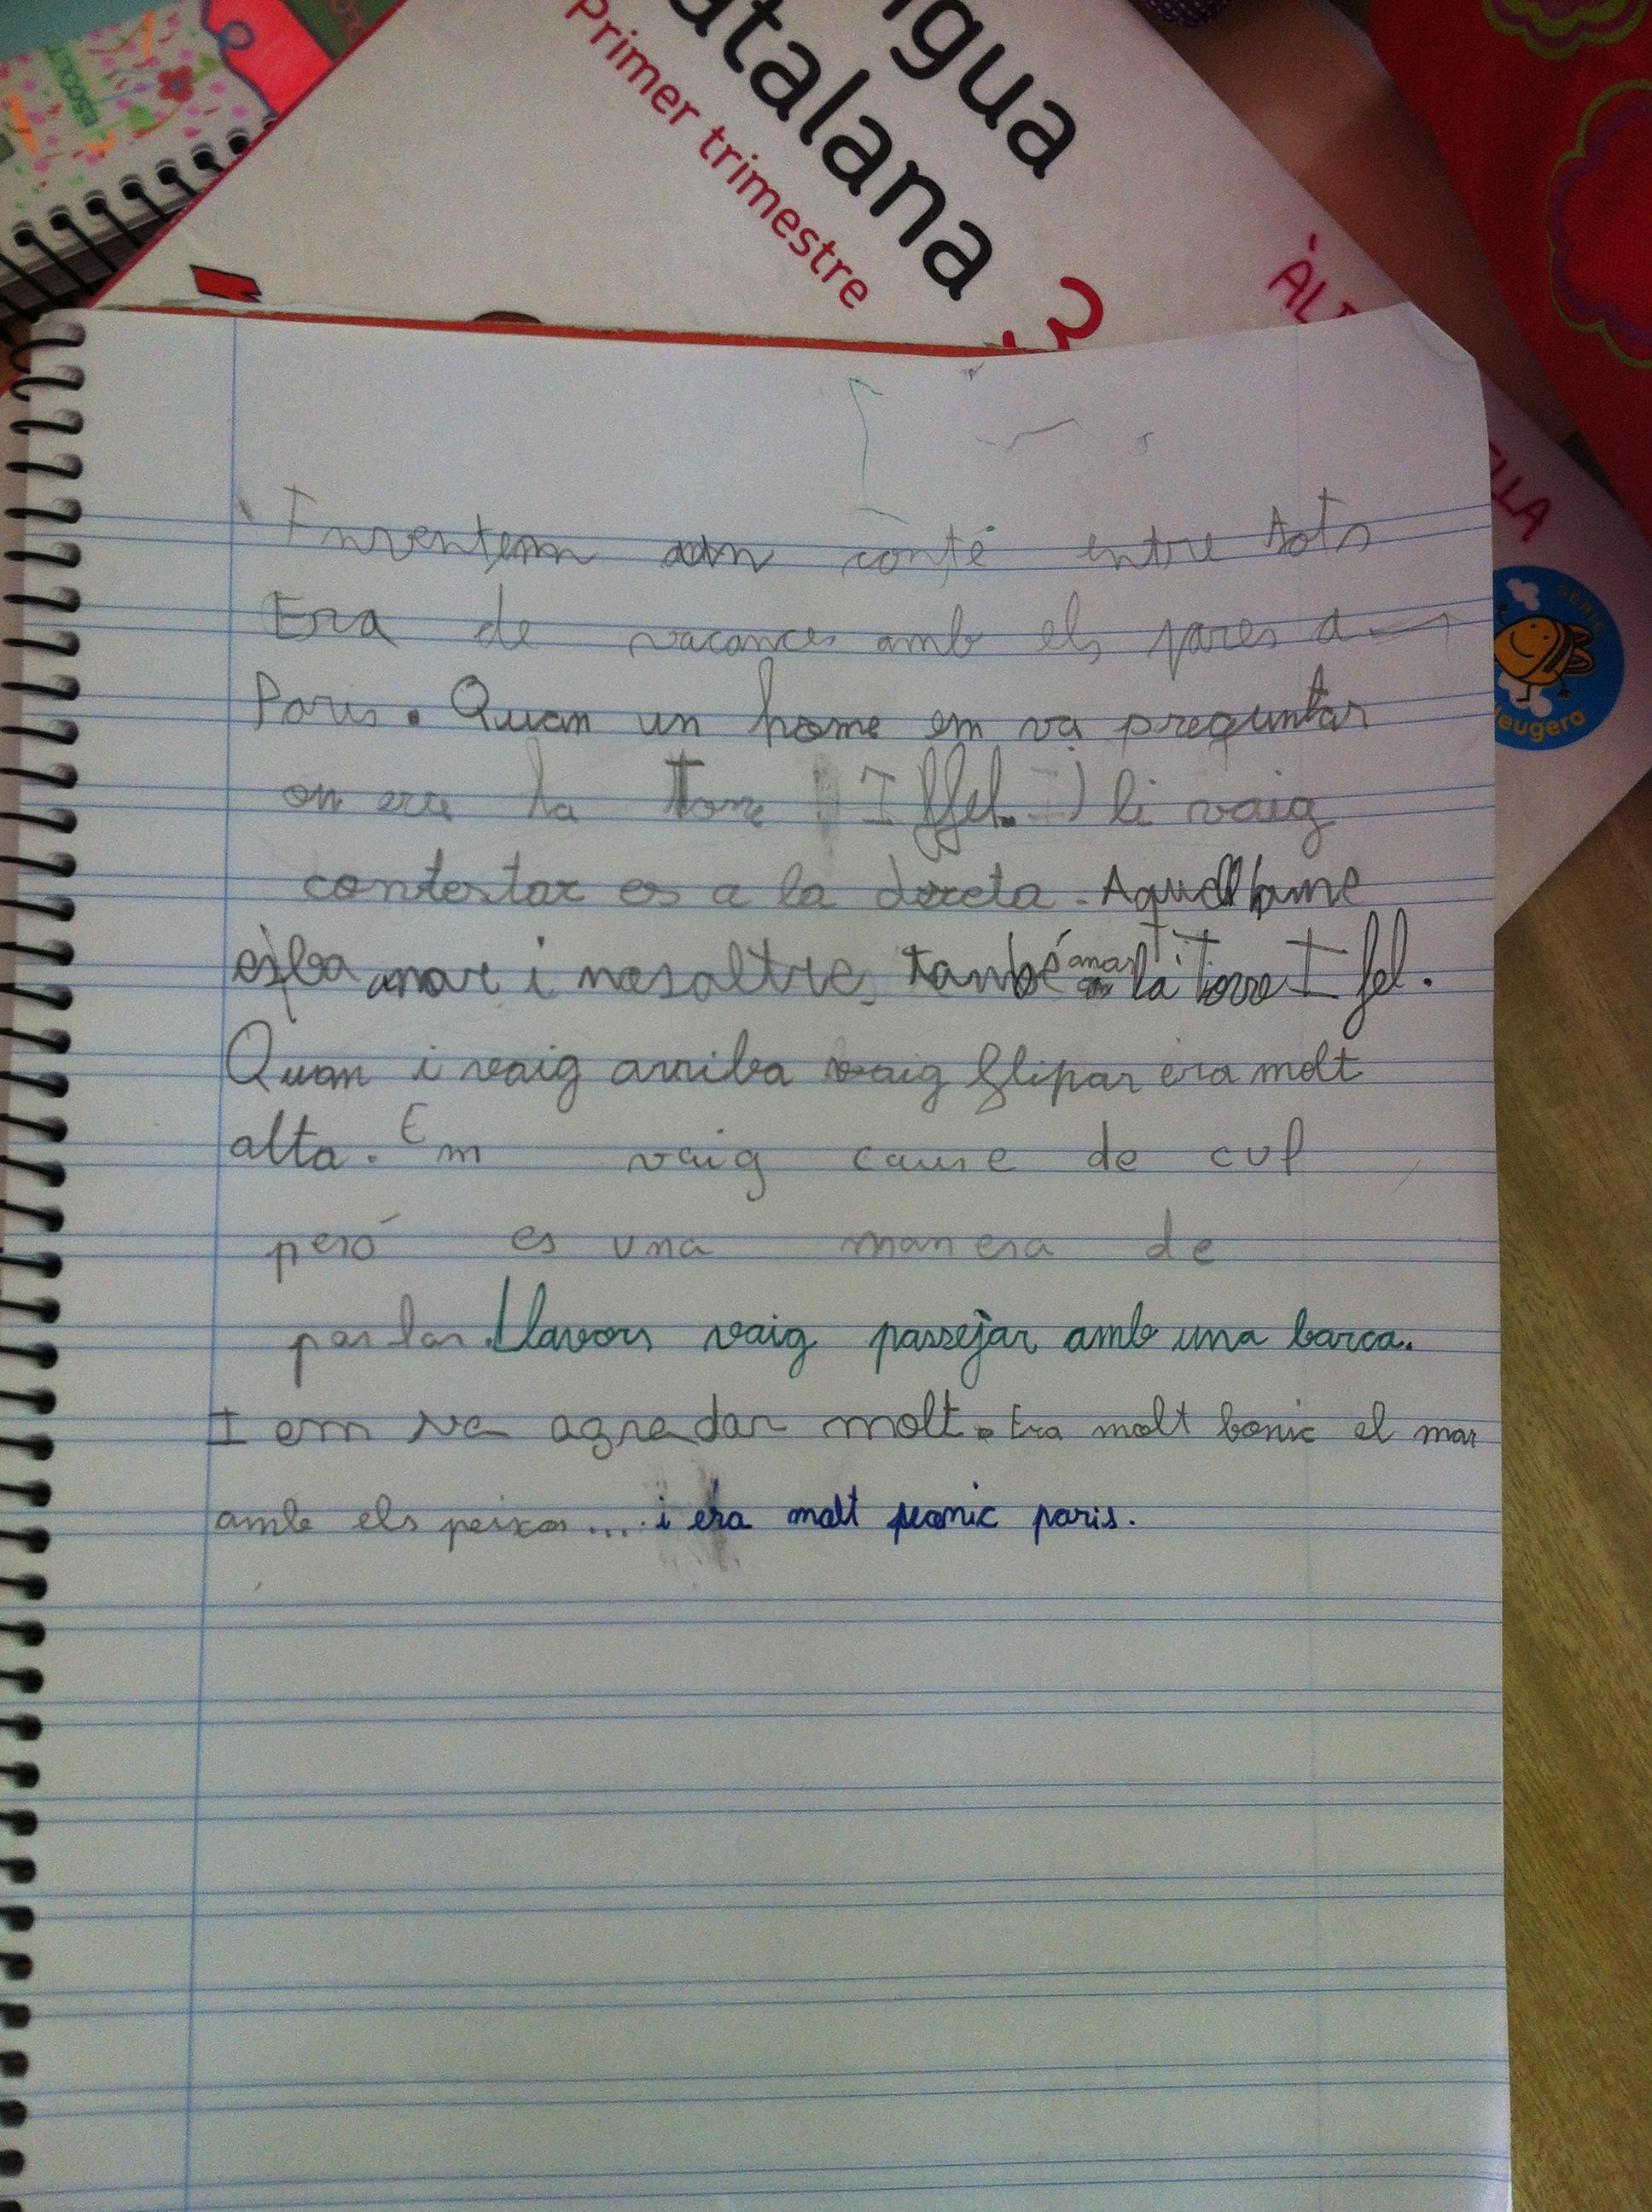 ngua
atalana 3
Primer trimestre
ÀL
ELLA
SÈRIE
lleugera
Enventem un conté entre tots
Era de vacances amb els pares a
Paris. Quan un home em va preguntar
on era la torre Iffel. I li vaig
contestar es a la dreta. Aquell home
anar i nosaltres també anar a la Torre I fel.
Quan i vaig arriba vaig flipar era molt
alta. Em vaig caure de cul
peró es una manera de
parlar. Llavors vaig passejar amb una barca.
I em va agradar molt. Era molt bonic el mar
amb els peixos.... i era molt bonic paris.